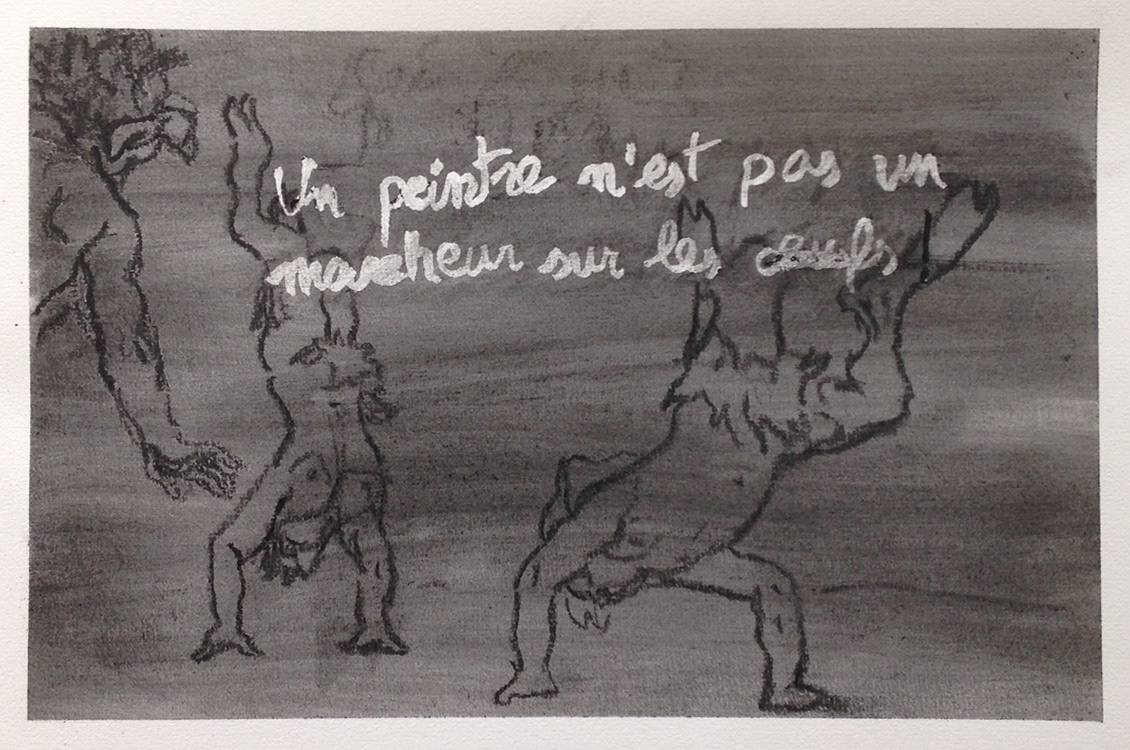 Un peintre n'est pas un
marcheur sur les œufs !